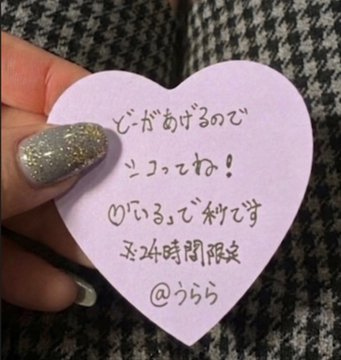 どーがあげるので
シコってね!
♡「いる」で秒です
※24時間限定
@うらら